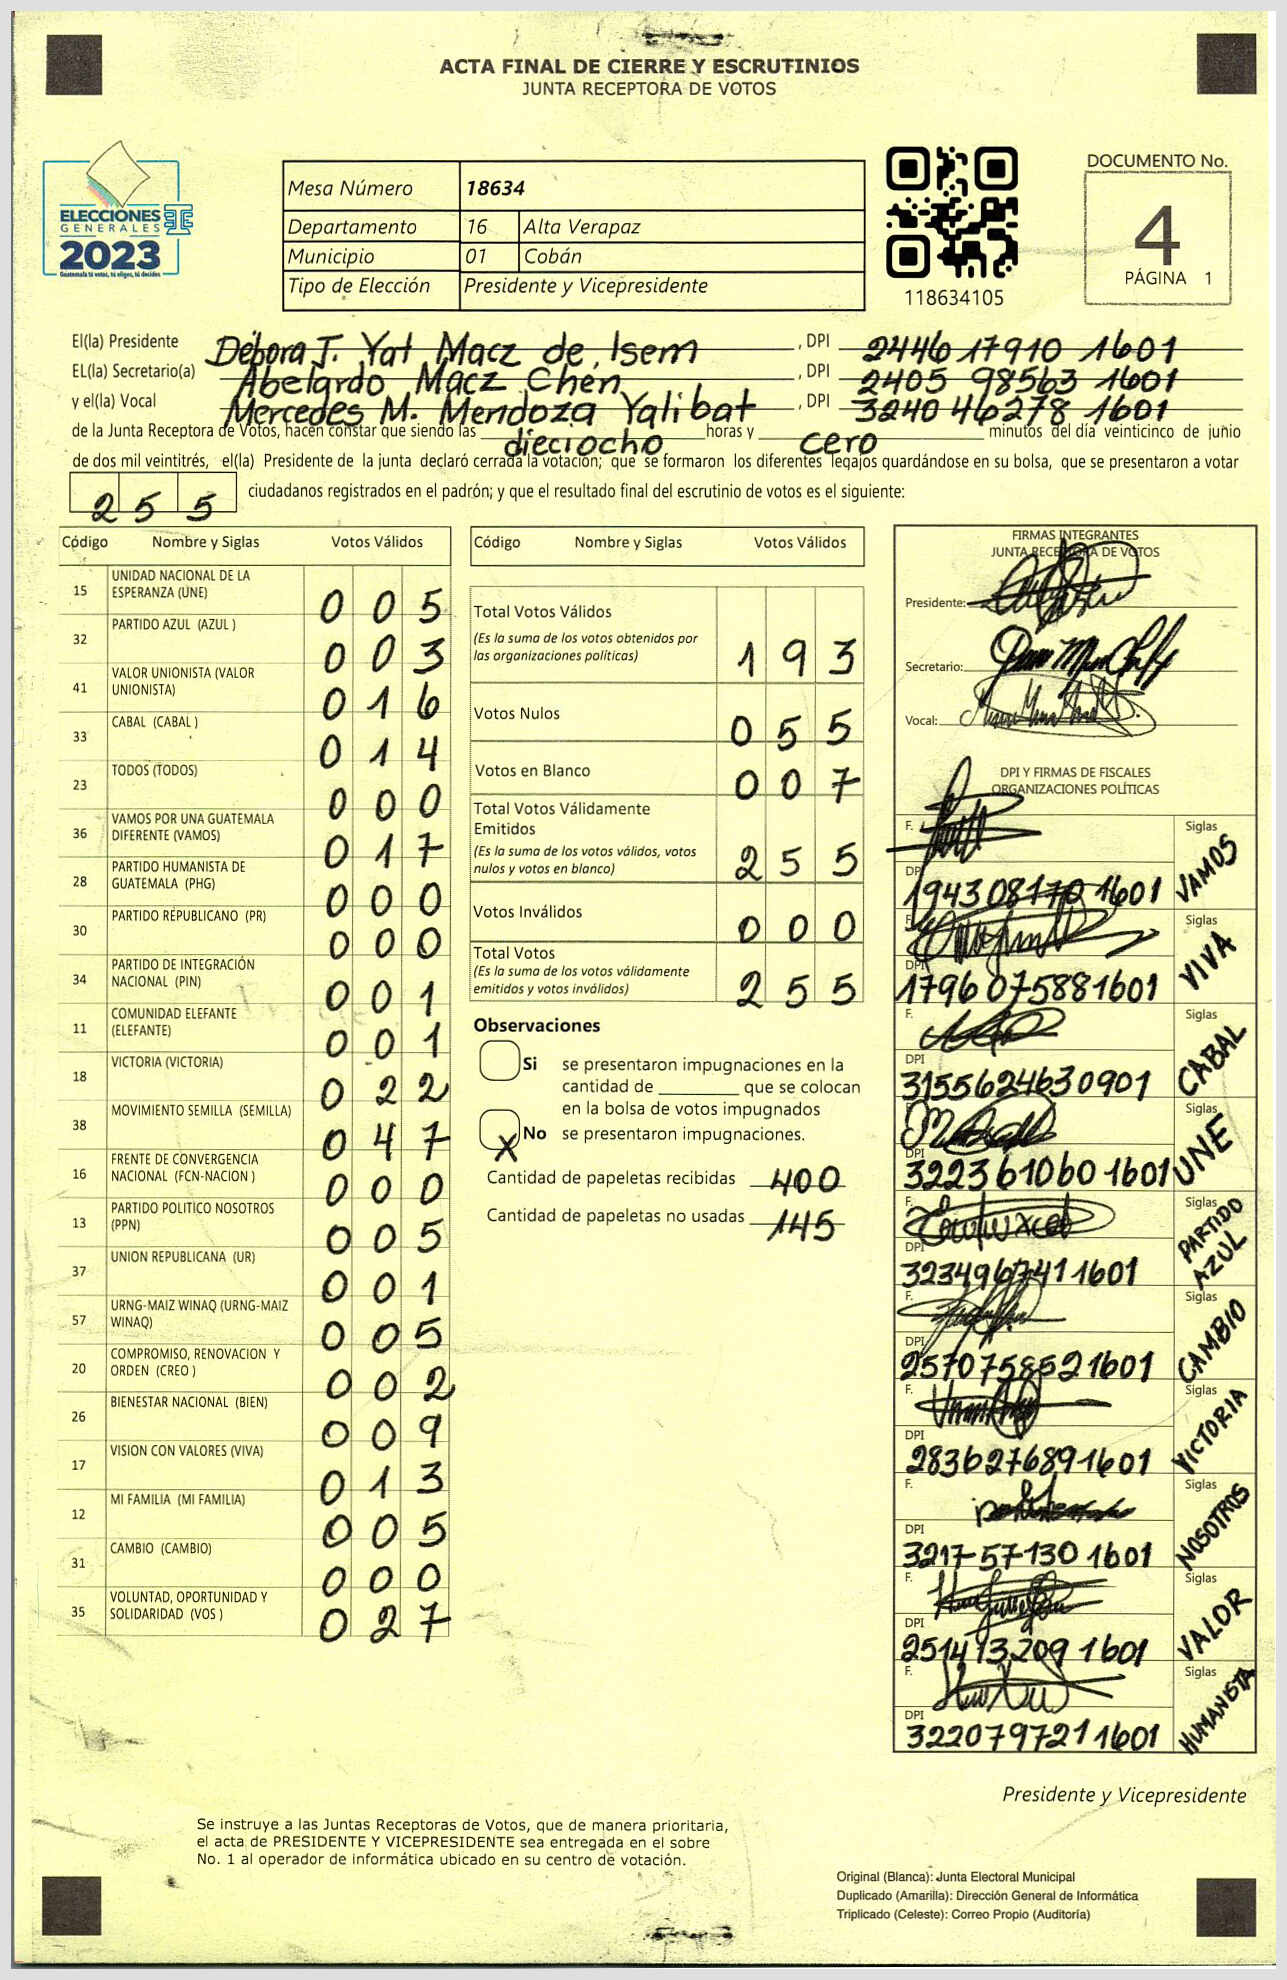 ACTA FINAL DE CIERRE Y ESCRUTINIOS
JUNTA RECEPTORA DE VOTOS
ELECCIONES
GENERALES
2023
Guatemala tú votas, tú eliges, tú decides
Mesa Número 18634
Departamento 16 Alta Verapaz
Municipio 01 Cobán
Tipo de Elección Presidente y Vicepresidente
118634105
DOCUMENTO No.
4
PÁGINA 1
El(la) Presidente Débora T. Yat Macz de Isem, DPI 2446 17910 1601
EL(la) Secretario(a) Abelardo Macz Chén, DPI 2405 98563 1601
y el(la) Vocal Mercedes M. Mendoza Yalibat, DPI 3240 46278 1601
de la Junta Receptora de Votos, hacen constar que siendo las dieciocho horas y cero minutos del día veinticinco de junio
de dos mil veintitrés, el(la) Presidente de la junta declaró cerrada la votación; que se formaron los diferentes legajos guardándose en su bolsa, que se presentaron a votar
255 ciudadanos registrados en el padrón; y que el resultado final del escrutinio de votos es el siguiente:
Código Nombre y Siglas Votos Válidos
15 UNIDAD NACIONAL DE LA ESPERANZA (UNE) 005
32 PARTIDO AZUL (AZUL ) 003
41 VALOR UNIONISTA (VALOR UNIONISTA) 016
33 CABAL (CABAL ) 014
23 TODOS (TODOS) 000
36 VAMOS POR UNA GUATEMALA DIFERENTE (VAMOS) 017
28 PARTIDO HUMANISTA DE GUATEMALA (PHG) 000
30 PARTIDO REPUBLICANO (PR) 000
34 PARTIDO DE INTEGRACIÓN NACIONAL (PIN) 001
11 COMUNIDAD ELEFANTE (ELEFANTE) 001
18 VICTORIA (VICTORIA) 022
38 MOVIMIENTO SEMILLA (SEMILLA) 047
16 FRENTE DE CONVERGENCIA NACIONAL (FCN-NACION ) 000
13 PARTIDO POLITICO NOSOTROS (PPN) 005
37 UNION REPUBLICANA (UR) 001
57 URNG-MAIZ WINAQ (URNG-MAIZ WINAQ) 005
20 COMPROMISO, RENOVACION Y ORDEN (CREO ) 002
26 BIENESTAR NACIONAL (BIEN) 009
17 VISION CON VALORES (VIVA) 013
12 MI FAMILIA (MI FAMILIA) 005
31 CAMBIO (CAMBIO) 000
35 VOLUNTAD, OPORTUNIDAD Y SOLIDARIDAD (VOS ) 027
Código Nombre y Siglas Votos Válidos
Total Votos Válidos 193
(Es la suma de los votos obtenidos por
las organizaciones políticas)
Votos Nulos 055
Votos en Blanco 007
Total Votos Válidamente
Emitidos 255
(Es la suma de los votos válidos, votos
nulos y votos en blanco)
Votos Inválidos 000
Total Votos 255
(Es la suma de los votos válidamente
emitidos y votos inválidos)
Observaciones
Si se presentaron impugnaciones en la
cantidad de ________ que se colocan
en la bolsa de votos impugnados
X No se presentaron impugnaciones.
Cantidad de papeletas recibidas 400
Cantidad de papeletas no usadas 145
FIRMAS INTEGRANTES
JUNTA RECEPTORA DE VOTOS
Presidente:
Secretario:
Vocal:
DPI Y FIRMAS DE FISCALES
ORGANIZACIONES POLÍTICAS
F. Siglas VAMOS
DPI 194308170 1601
F. Siglas VIVA
DPI 1796 075881601
F. Siglas CABAL
DPI 3155624630901
F. Siglas UNE
DPI 322361060 1601
F. Siglas PARTIDO AZUL
DPI 3234967411601
F. Siglas CAMBIO
DPI 2570758521601
F. Siglas VICTORIA
DPI 2836276891601
F. Siglas NOSOTROS
DPI 3217 57130 1601
F. Siglas VALOR
DPI 251413209 1601
F. Siglas HUMANISTA
DPI 3220797211601
Presidente y Vicepresidente
Se instruye a las Juntas Receptoras de Votos, que de manera prioritaria,
el acta de PRESIDENTE Y VICEPRESIDENTE sea entregada en el sobre
No. 1 al operador de informática ubicado en su centro de votación.
Original (Blanca): Junta Electoral Municipal
Duplicado (Amarilla): Dirección General de Informática
Triplicado (Celeste): Correo Propio (Auditoría)